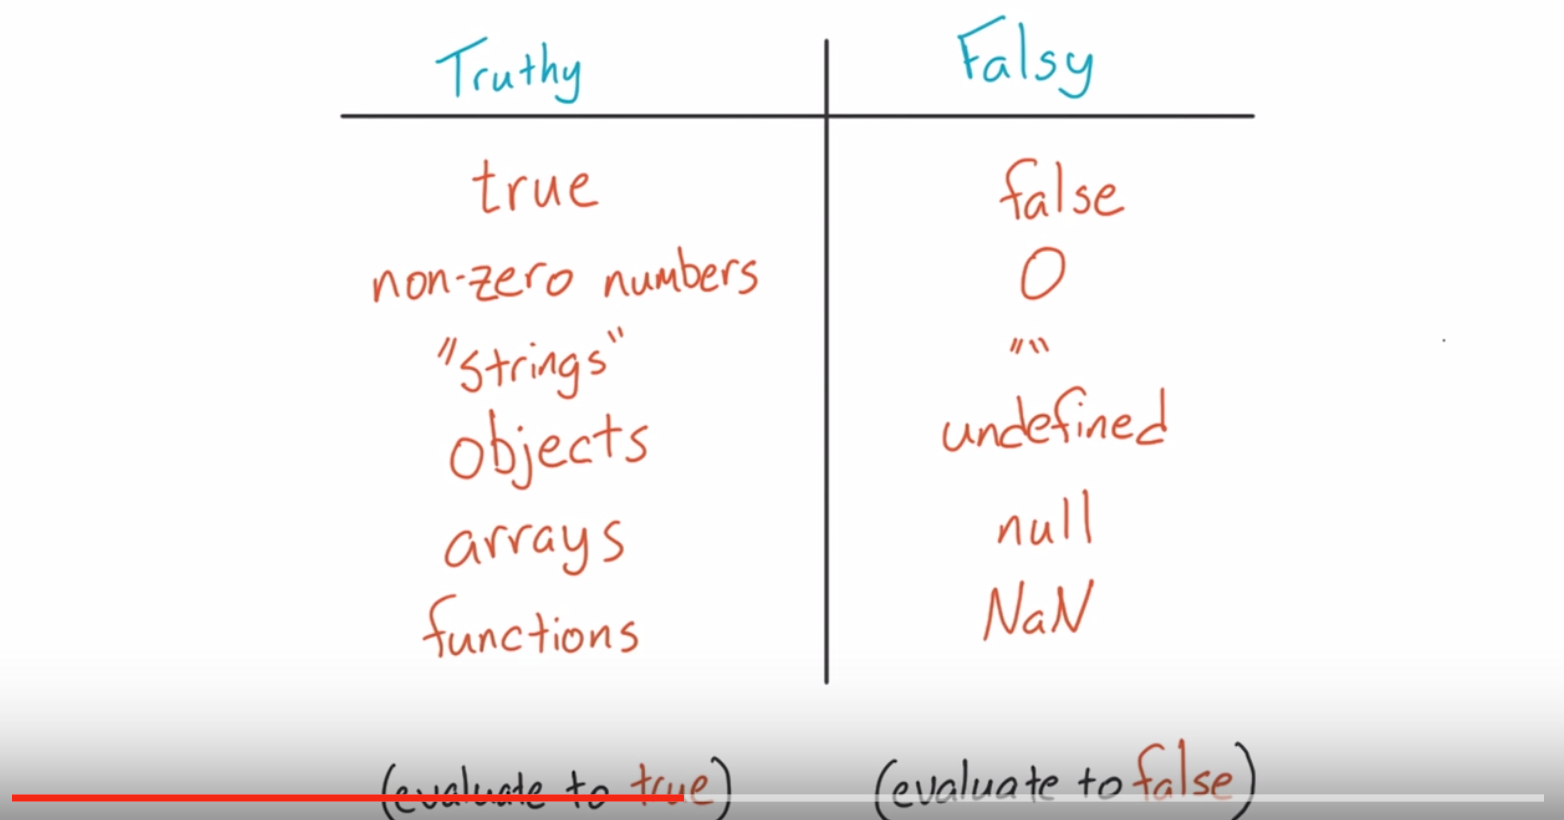 Truthy Falsy
true false
non-zero numbers 0
"strings" ""
objects undefined
arrays null
functions NaN
(evaluate to true) (evaluate to false)